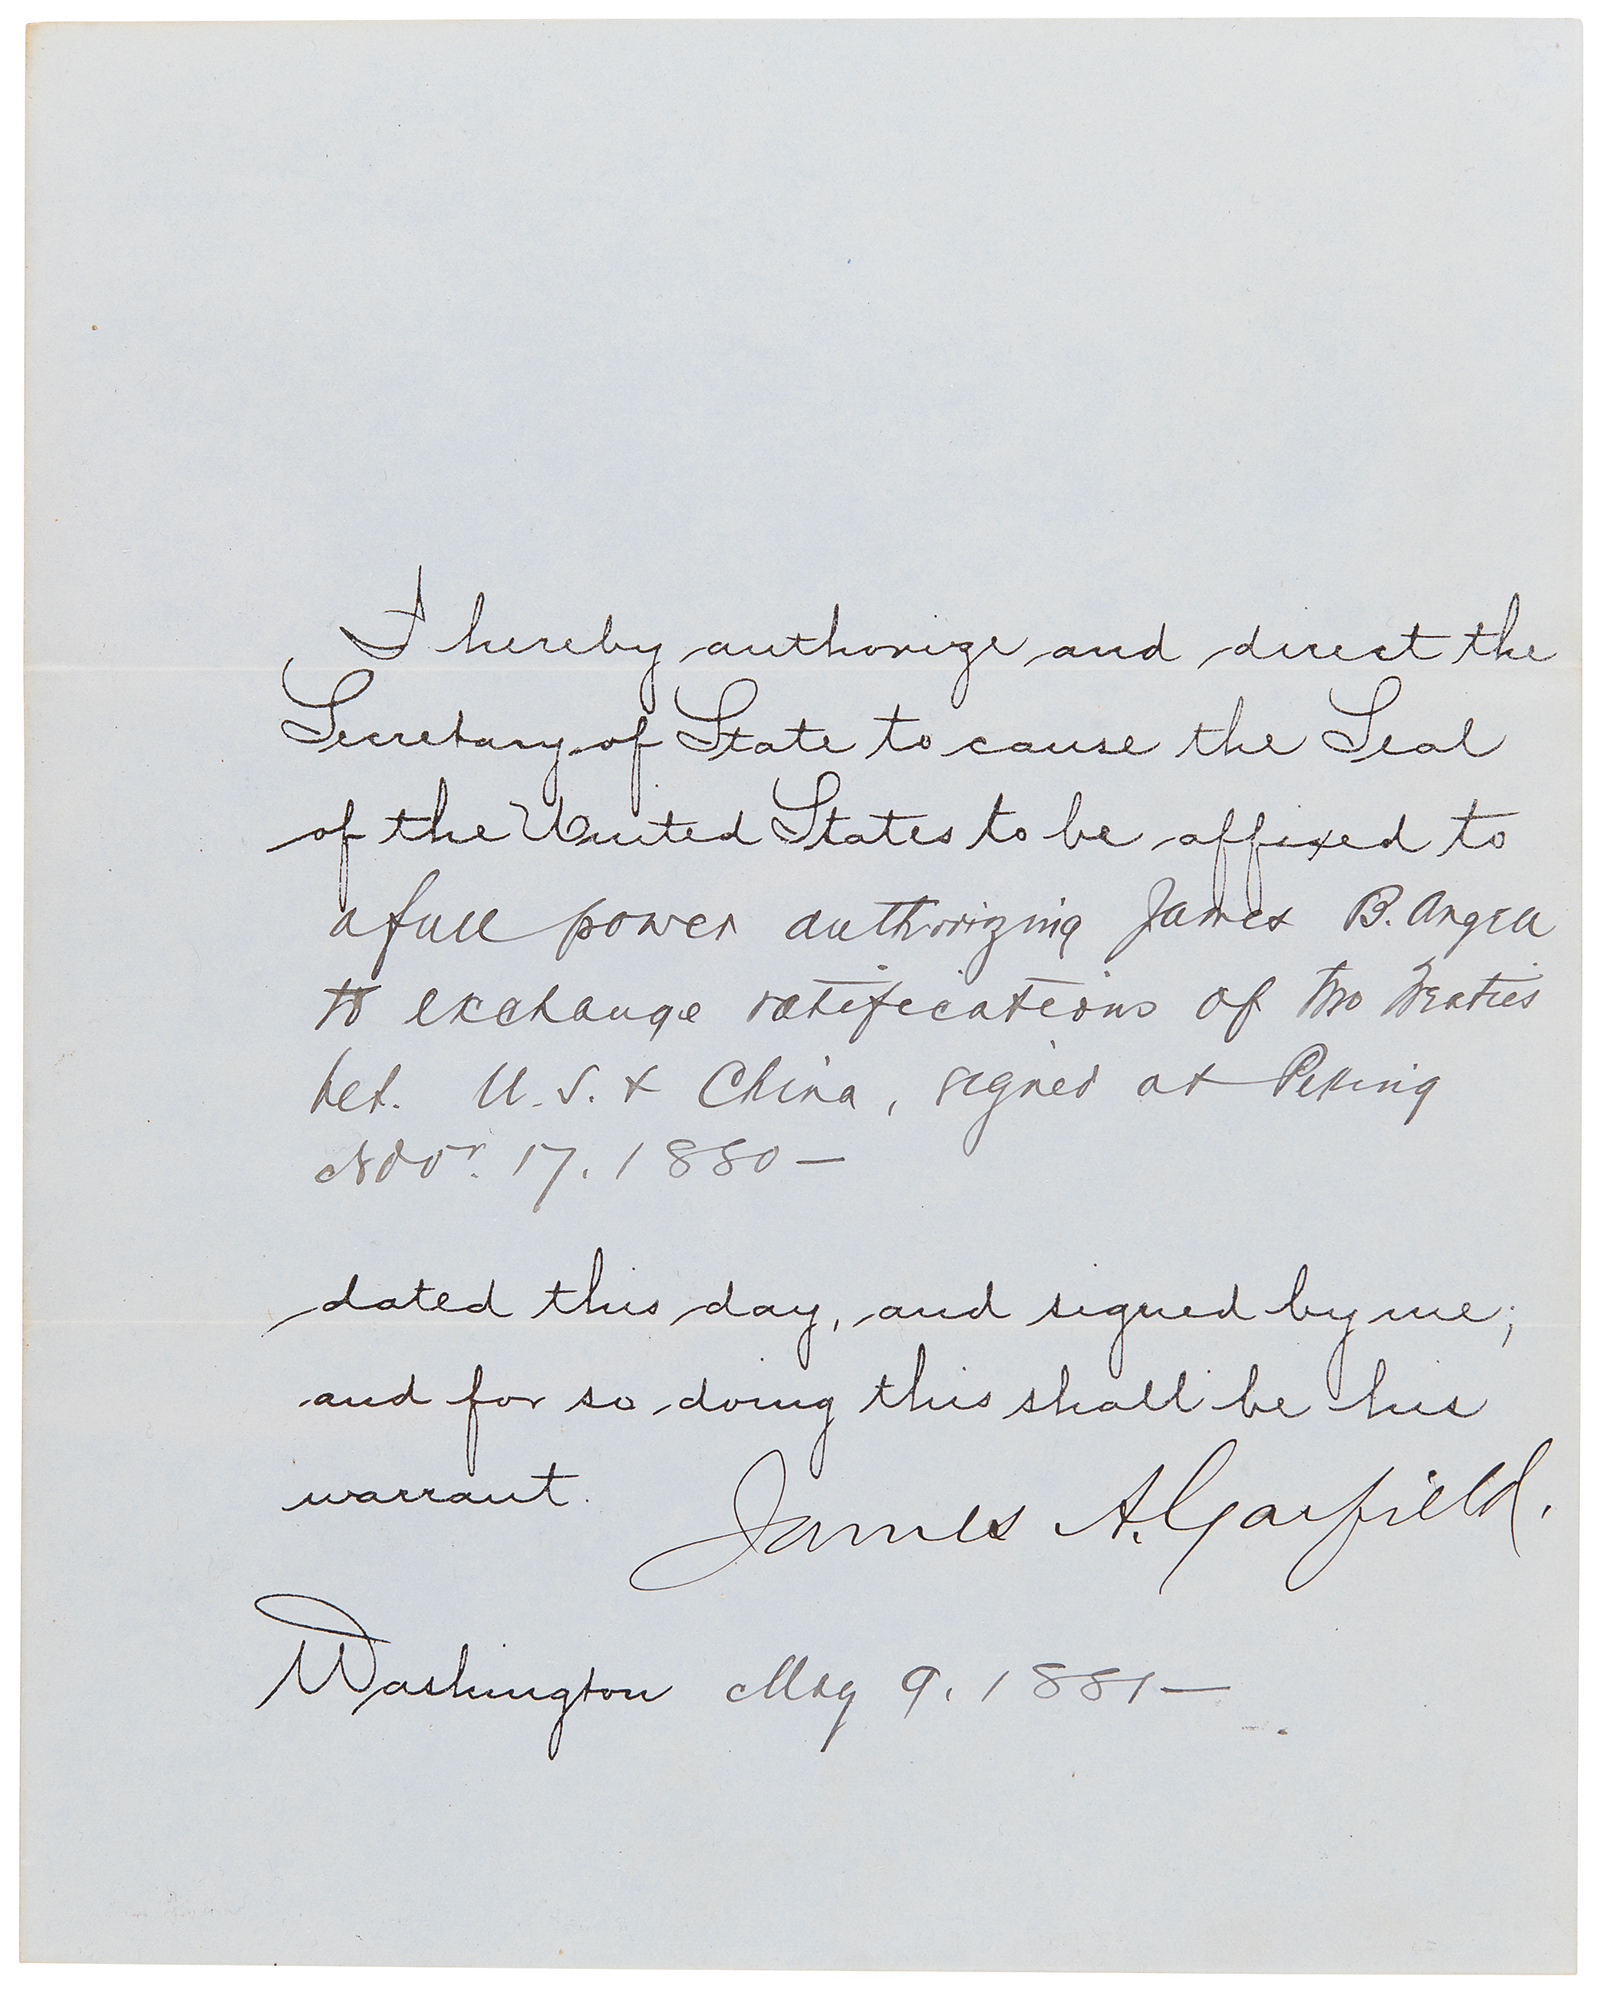 I hereby authorize and direct the
Secretary of State to cause the Seal
of the United States to be affixed to
a full power authorizing James B. Angell
to exchange ratifications of two Treaties
bet. U.S. & China, signed at Peking
Novr. 17. 1880 —
dated this day, and signed by me;
and for so doing this shall be his
warrant.
James A. Garfield.
Washington May 9. 1881 —